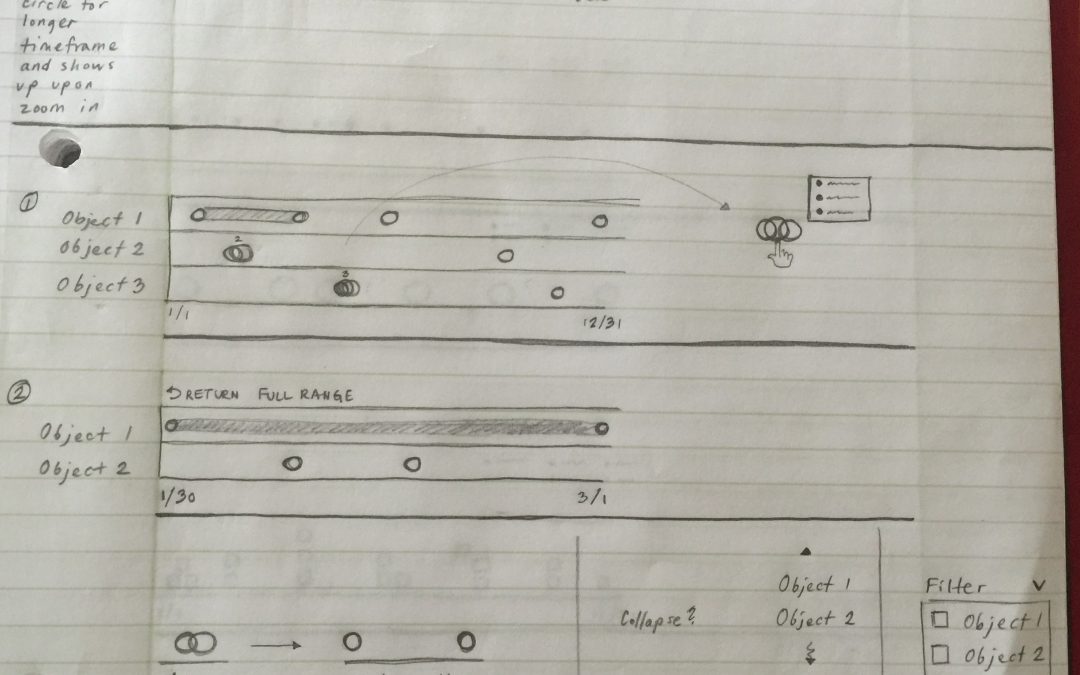 circle for
longer
timeframe
and shows
up upon
zoom in
①
Object 1
Object 2
2
Object 3
3
1/1
12/31
②
RETURN FULL RANGE
Object 1
Object 2
1/30
3/1
Collapse?
Object 1
Object 2
Filter
Object 1
Object 2